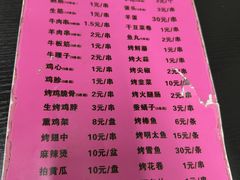 生筋 2元/串
牛肉串 1.5元/串
羊肉串 2元/串
牛板筋 1元/串
牛腰子 2元/串
鸡心 1元/串
鸡胗 1元/串
烤鸡脆骨 2元/串
生烤鸡脖 3元/串
熏鸡架 8元/只
烤翅中 10元/串
麻辣烫 10元/盆
拍黄瓜 10元/盘
3元/串
羊蛋 30元/个
干豆菜卷 1元/串
鱼丸 2元/串
烤鲜蘑 1元/串
烤大蒜 1元/串
烤尖椒 1元/串
烤韭菜 1元/串
烤大腿肠 2元/串
蚕蛹子 3元/串
烤棒鱼 6元/条
烤明太鱼 15元/条
烤雪鱼 30元/条
烤花卷 1元/串